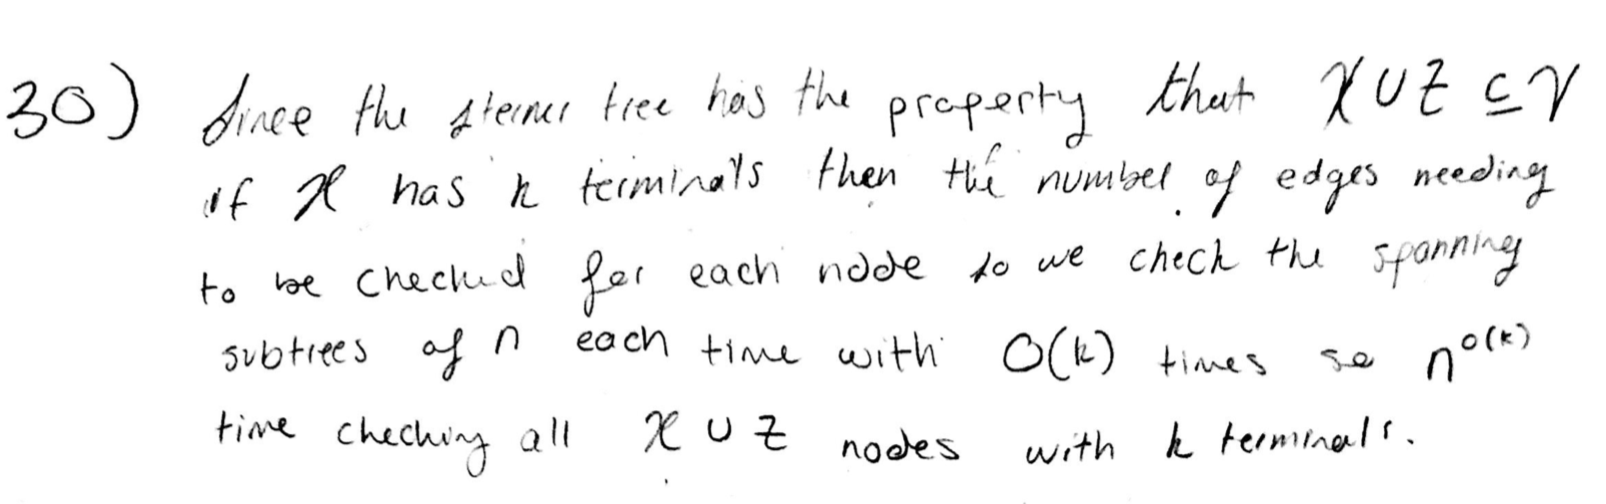 30) Since the steiner tree has the property that X ∪ Z ⊆ V
if X has k terminals then the number of edges needing
to be checked for each node so we check the spanning
subtrees of n each time with O(k) times so n^O(k)
time checking all X ∪ Z nodes with k terminals.